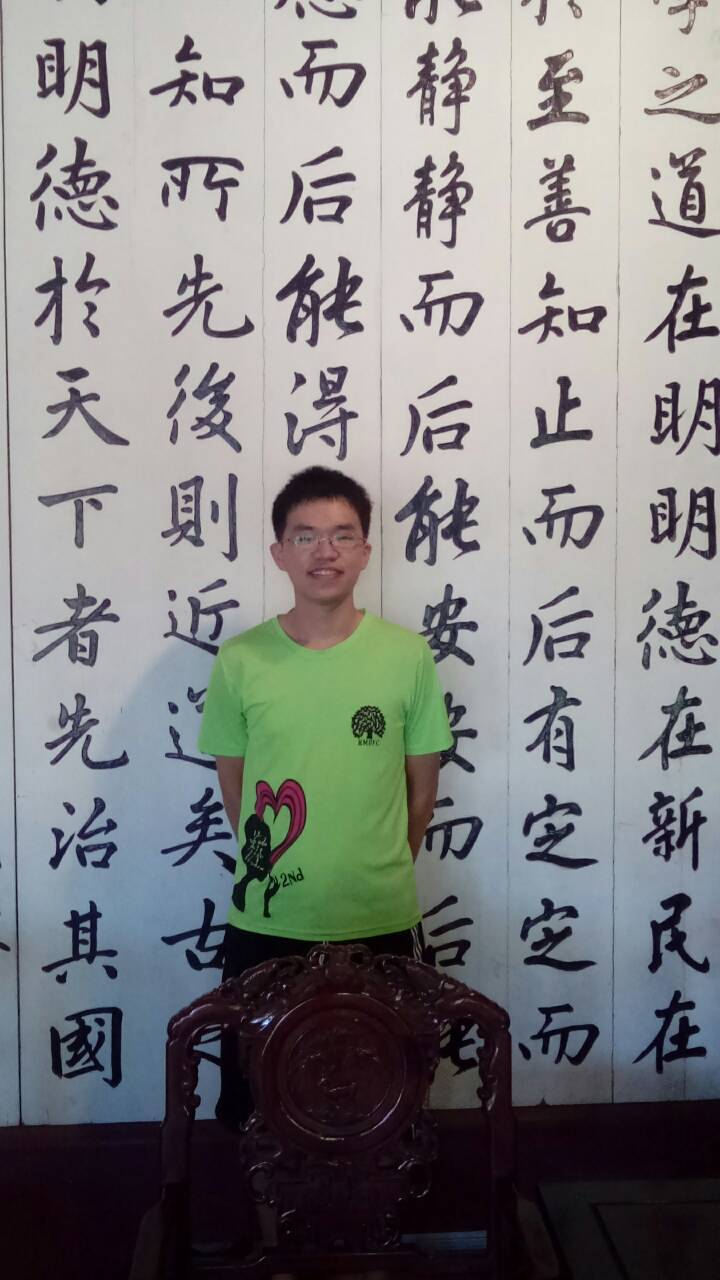 之道在明明德在新民在
至善知止而后有定定而
能静静而后能安安而后能
而后能得
知所先後則近道矣古
明德於天下者先治其國
2Nd